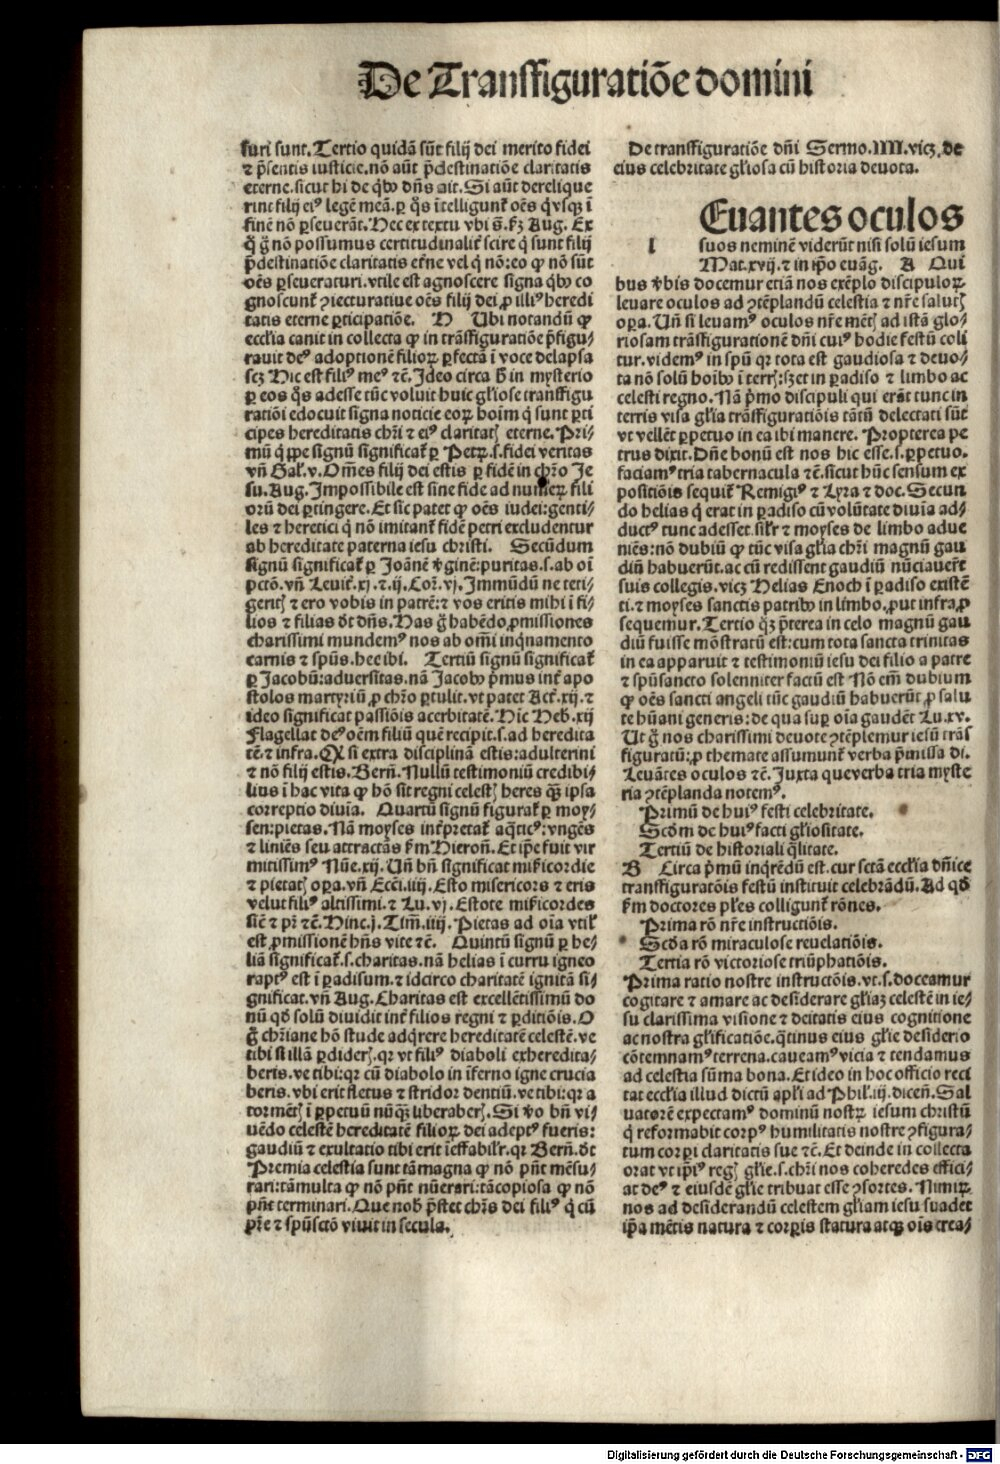 De Transfiguratiõe domini
furi sunt. Tertio quidã sũt filij dei merito fidei
⁊ p̃sentis iusticie. nõ aũt p̃destinatiõe claritatis
eterne. sicut hi de q̈bꝰ dñs ait. Si aũt derelique
rint filij eiꝰ legẽ meã. ꝑ q̈s ĩtelligunt᷑ oẽs q̈vsqꝫ ĩ
finẽ nõ ꝑseuerãt. Hec ex textu vbi s̃. ẜm Aug. Ex
q̈ g̃ nõ possumus certitudinalit᷑ scire q̈ sunt filij
p̃destinatiõe claritatis et᷑ne vel q̈ nõ: eo ꝙ nõ sũt
oẽs ꝑseueraturi. vtile est agnoscere signa q̈bꝰ co
gnoscunt᷑ ꝯiecturatiue oẽs filij dei ꝓ illiꝰ heredi
tatis eterne ꝑticipatiõe. D Ubi notandũ ꝙ
eccl̃ia canit in collecta ꝙ in trãsfiguratiõe p̃figu/
rauit deꝰ adoptionẽ filioꝝ ꝑfectã ĩ voce delapsa
scꝫ Hic est filiꝰ meꝰ ⁊c̃. Ideo circa h̃ in mysterio
ꝑ eos q̈s adesse tũc voluit huic gl̃iose transfigu
ratiõi edocuit signa noticie eoꝝ hoĩm q̈ sunt ꝑti
cipes hereditatis chr̃i ⁊ eiꝰ claritat᷒ eterne. Pri/
mũ q̈ ꝓpe signũ significat᷑ ꝑ Petꝝ. s. fidei veritas
vñ Gal᷑. v. Om̃es filij dei estis ꝑ fidẽ in chr̃o Je
su. Aug. Impossibile est sine fide ad numeꝝ fili
orũ dei ꝑtingere. Et sic patet ꝙ oẽs iudei: genti/
les ⁊ heretici q̈ nõ imitant᷑ fidẽ petri excludentur
ab hereditate paterna iesu christi. Secũdum
signũ significat᷑ ꝑ Joãnẽ v̓ginẽ: puritas. s. ab oĩ
pctõ. vñ Leuit᷑. xj. ⁊. ij. Cor̃. vj. Immũdũ ne teti/
gerit᷒ ⁊ ero vobis in patrẽ: ⁊ vos eritis mihi ĩ fi/
lios ⁊ filias dt̃ dñs. Has g̃ habẽdo ꝓmissiones
charissimi mundemꝰ nos ab om̃i inq̈namento
carnis ⁊ spũs. hec ibi. Tertiũ signũ significat᷑
ꝑ Jacobũ: aduersitas. nã Jacobꝰ p̃mus int᷑ apo
stolos martyriũ ꝓ chr̃o ꝑtulit. vt patet Act᷑. xij. ⁊
ideo significat passiõis acerbitatẽ. Hĩc Heb. xij
Flagellat deꝰ oẽm filiũ quẽ recipit. s. ad heredita
tẽ. ⁊ infra. Qꝫ si extra disciplinã estis: adulterini
⁊ nõ filij estis. Berñ. Nullũ testimoniũ credibi/
lius ĩ hac vita ꝙ hõ sit regni celest᷒ heres q̈ꝫ ipsa
correptio diuĩa. Quartũ signũ figurat᷑ ꝑ moy/
sen: pietas. Nã moyses int᷑pretat᷑ aq̈ticꝰ: vngẽs
⁊ liniẽs seu attractãs ẜm Hieroñ. Et ip̃e fuit vir
mitissimꝰ Nũe. xij. Uñ bñ significat mĩẜicordie
⁊ pietat᷒ oꝑa. vñ Ecc̃i. iiij. Esto misericors ⁊ eris
velut filiꝰ altissimi. ⁊ Lu. vj. Estote mĩẜicordes
sic̃ ⁊ pr̃ ⁊c̃. Hinc. j. Tim̃. iiij. Pietas ad oĩa vtil᷑
est ꝓmissionẽ hñs vite ⁊c̃. Quintũ signũ ꝑ he/
liã significat᷑. s. charitas. nã helias ĩ curru igneo
raptꝰ est ĩ ꝑadisum. ⁊ idcirco charitatẽ ignitã si/
gnificat. vñ Aug. Charitas est excellẽtissimũ do
nũ qd̃ solũ diuidit int᷑ filios regni ⁊ ꝑditiõis. O
g̃ chr̃iane hõ stude adq̈rere hereditatẽ celestẽ. ve
tibi si illã ꝑdider᷒. qꝛ vt filiꝰ diaboli exheredita/
beris. ve tibi: qꝛ cũ diabolo in ĩferno igne crucia
beris. vbi erit fletus ⁊ stridor dentiũ. ve tibi: qꝛ a
tormẽt᷒ ĩ ꝑpetuũ nũq̈ꝫ liberaber᷒. Si v̓o bñ vi/
uẽdo celestẽ hereditatẽ filioꝝ dei adeptꝰ fueris:
gaudiũ ⁊ exultatio tibi erit ĩeffabil᷑r. qꝛ Berñ. dt̃
Premia celestia sunt tã magna ꝙ nõ pñt mẽsu/
rari: tã multa ꝙ nõ pñt nũerari: tã copiosa ꝙ nõ
pñt terminari. Que nob̃ p̃stet chr̃s dei filiꝰ q̈ cũ
pr̃e ⁊ spũsctõ viuit in secula.
De transfiguratiõe dñi Sermo. IIII. vicꝫ. de
eius celebritate gl̃iosa cũ historia deuota.
l Euantes oculos
suos neminẽ viderũt nisi solũ iesum
Mat. xvij. ⁊ in ip̃o euãg. A Qui
bus v̓bis docemur etiã nos exẽplo discipuloꝝ
leuare oculos ad ꝯtẽplandũ celestia ⁊ nr̃e salut᷒
oꝑa. Uñ si leuamꝰ oculos nr̃e mẽt᷒ ad istã glo/
riosam trãsfigurationẽ dñi cuiꝰ hodie festũ coli
tur. videmꝰ in spũ qꝛ tota est gaudiosa ⁊ deuo/
ta nõ solũ hoĩbꝰ ĩ terr᷒: sꝫ et in ꝑadiso ⁊ limbo ac
celesti regno. Nã p̃mo discipuli qui erãt tunc in
terris visa gl̃ia trãsfiguratiõis tãtũ delectati sũt
vt vellẽt ꝑpetuo in ea ibi manere. Propterea pe
trus dixit. Dñe bonũ est nos hic esse. s. ꝑpetuo.
faciamꝰ tria tabernacula ⁊c̃. sicut hũc sensum ex
positiõis sequit᷑ Remigiꝰ ⁊ Lyra ⁊ doc. Secun
do helias q̈ erat in ꝑadiso cũ volũtate diuĩa ad/
ductꝰ tunc adesset. sil᷑r ⁊ moyses de limbo adue
niẽs: nõ dubiũ ꝙ tũc visa gl̃ia chr̃i magnũ gau
diũ habuerũt. ac cũ redissent gaudiũ nũciauer̃t
suis collegis. vicꝫ Helias Enoch ĩ ꝑadiso existẽ
ti. ⁊ moyses sanctis patribꝰ in limbo. ꝓut infra ꝓ
sequemur. Tertio q̈ꝫ p̃terea in celo magnũ gau
diũ fuisse mõstratũ est: cum tota sancta trinitas
in ea apparuit ⁊ testimoniũ iesu dei filio a patre
⁊ spũsancto solenniter factũ est Nõ em̃ dubium
ꝙ oẽs sancti angeli tũc gaudiũ habuerũt ꝓ salu
te hũani generis: de qua suꝑ oĩa gaudẽt Lu. xv.
Ut g̃ nos charissimi deuote ꝯtẽplemur iesũ trãs
figuratũ: ꝓ themate assumunt᷑ verba p̃missa di.
Leuãtes oculos ⁊c̃. Juxta que verba tria myste
ria ꝯtẽplanda notemꝰ.
Primũ de huiꝰ festi celebritate.
Scd̃m de huiꝰ facti gl̃iositate.
Tertiũ de historiali q̈litate.
B Circa p̃mũ inq̈rẽdũ est. cur sctã eccl̃ia dñice
transfiguratõis festũ instituit celebrãdũ. Ad qd̃
ẜm doctores pl̃es colligunt᷑ rõnes.
Prima rõ nr̃e instructiõis.
Scd̃a rõ miraculose reuelatiõis.
Tertia rõ victoriose triũphatiõis.
Prima ratio nostre instructõis. vt. s. doceamur
cogitare ⁊ amare ac desiderare gl̃iaꝫ celestẽ in ie/
su clarissima visione ⁊ deitatis eius cognitione
ac nostra gl̃ificatiõe. q̈tinus eius gl̃ie desiderio
cõtemnamꝰ terrena. caueamꝰ vicia ⁊ tendamus
ad celestia sũma bona. Et ideo in hoc officio reci
tat eccl̃ia illud dictũ apl̃i ad Phil᷑. iij. diceñ. Sal
uatorẽ expectamꝰ dominũ nostꝝ iesum christũ
q̈ reformabit corpꝰ humilitatis nostre ꝯfigura/
tum corꝑi claritatis sue ⁊c̃. Et deinde in collecta
orat vt ip̃iꝰ reg᷒ gl̃ie. s. chr̃i nos coheredes effici/
at deꝰ ⁊ eiusdẽ gl̃ie tribuat esse ꝯsortes. Nimiꝝ
nos ad desiderandũ celestem gl̃iam iesu suadet
ip̃a mẽtis natura ⁊ corꝑis statura atqꝫ oĩs crea/
Digitalisierung gefördert durch die Deutsche Forschungsgemeinschaft - DFG